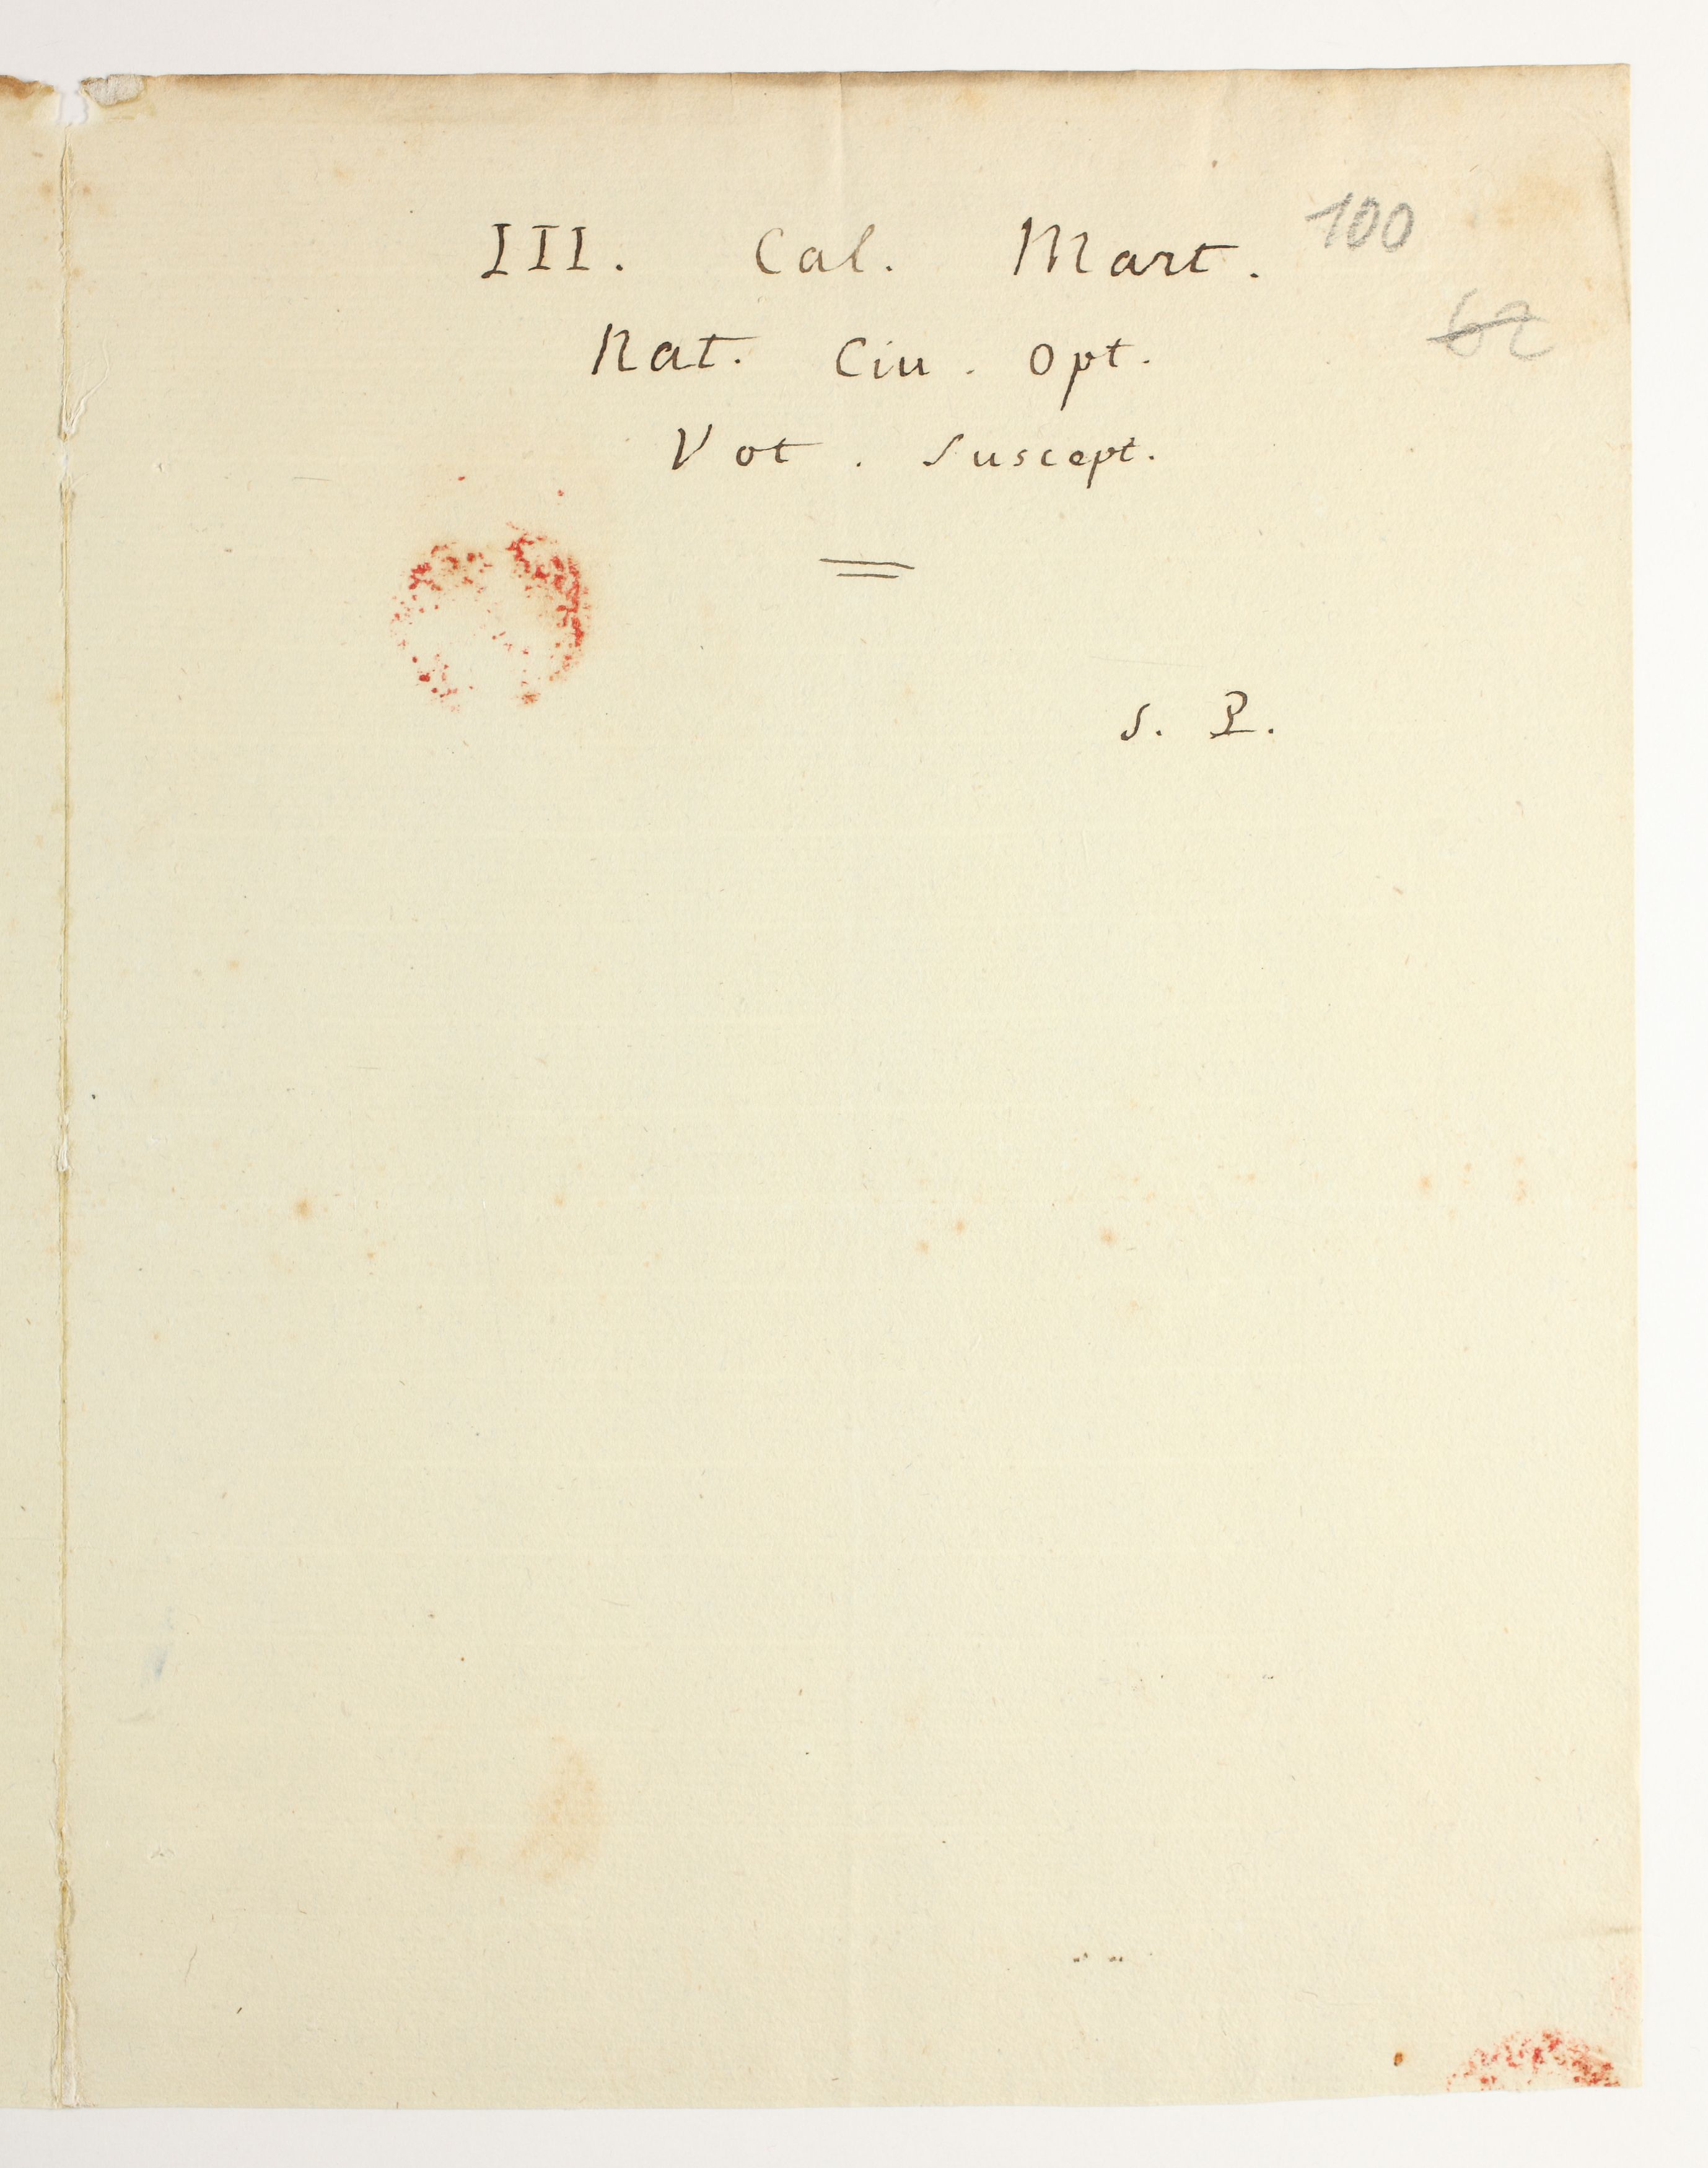 III. Cal. Mart.
100
62
Nat. Ciu. Opt.
Vot. Suscept.
S. P.